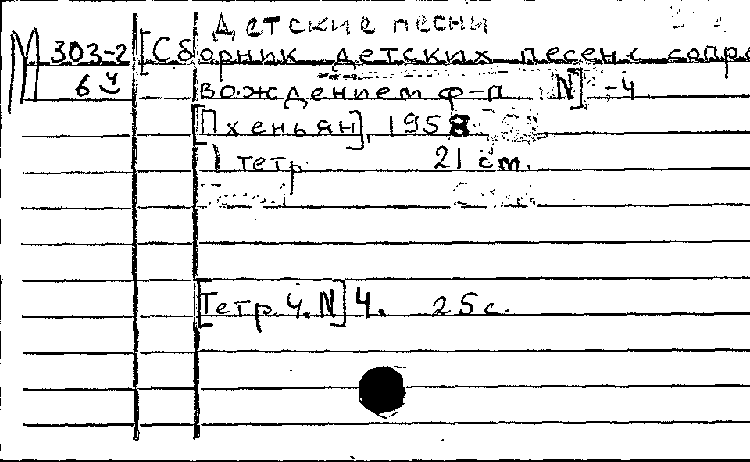 Детские песни
М 303-2 [Сборник детских песен с сопро
64 вождением ф-п. N] -4
[Пхеньян], 1958
тетр 21 см.
[Тетр. 4. N] 4. 25 с.